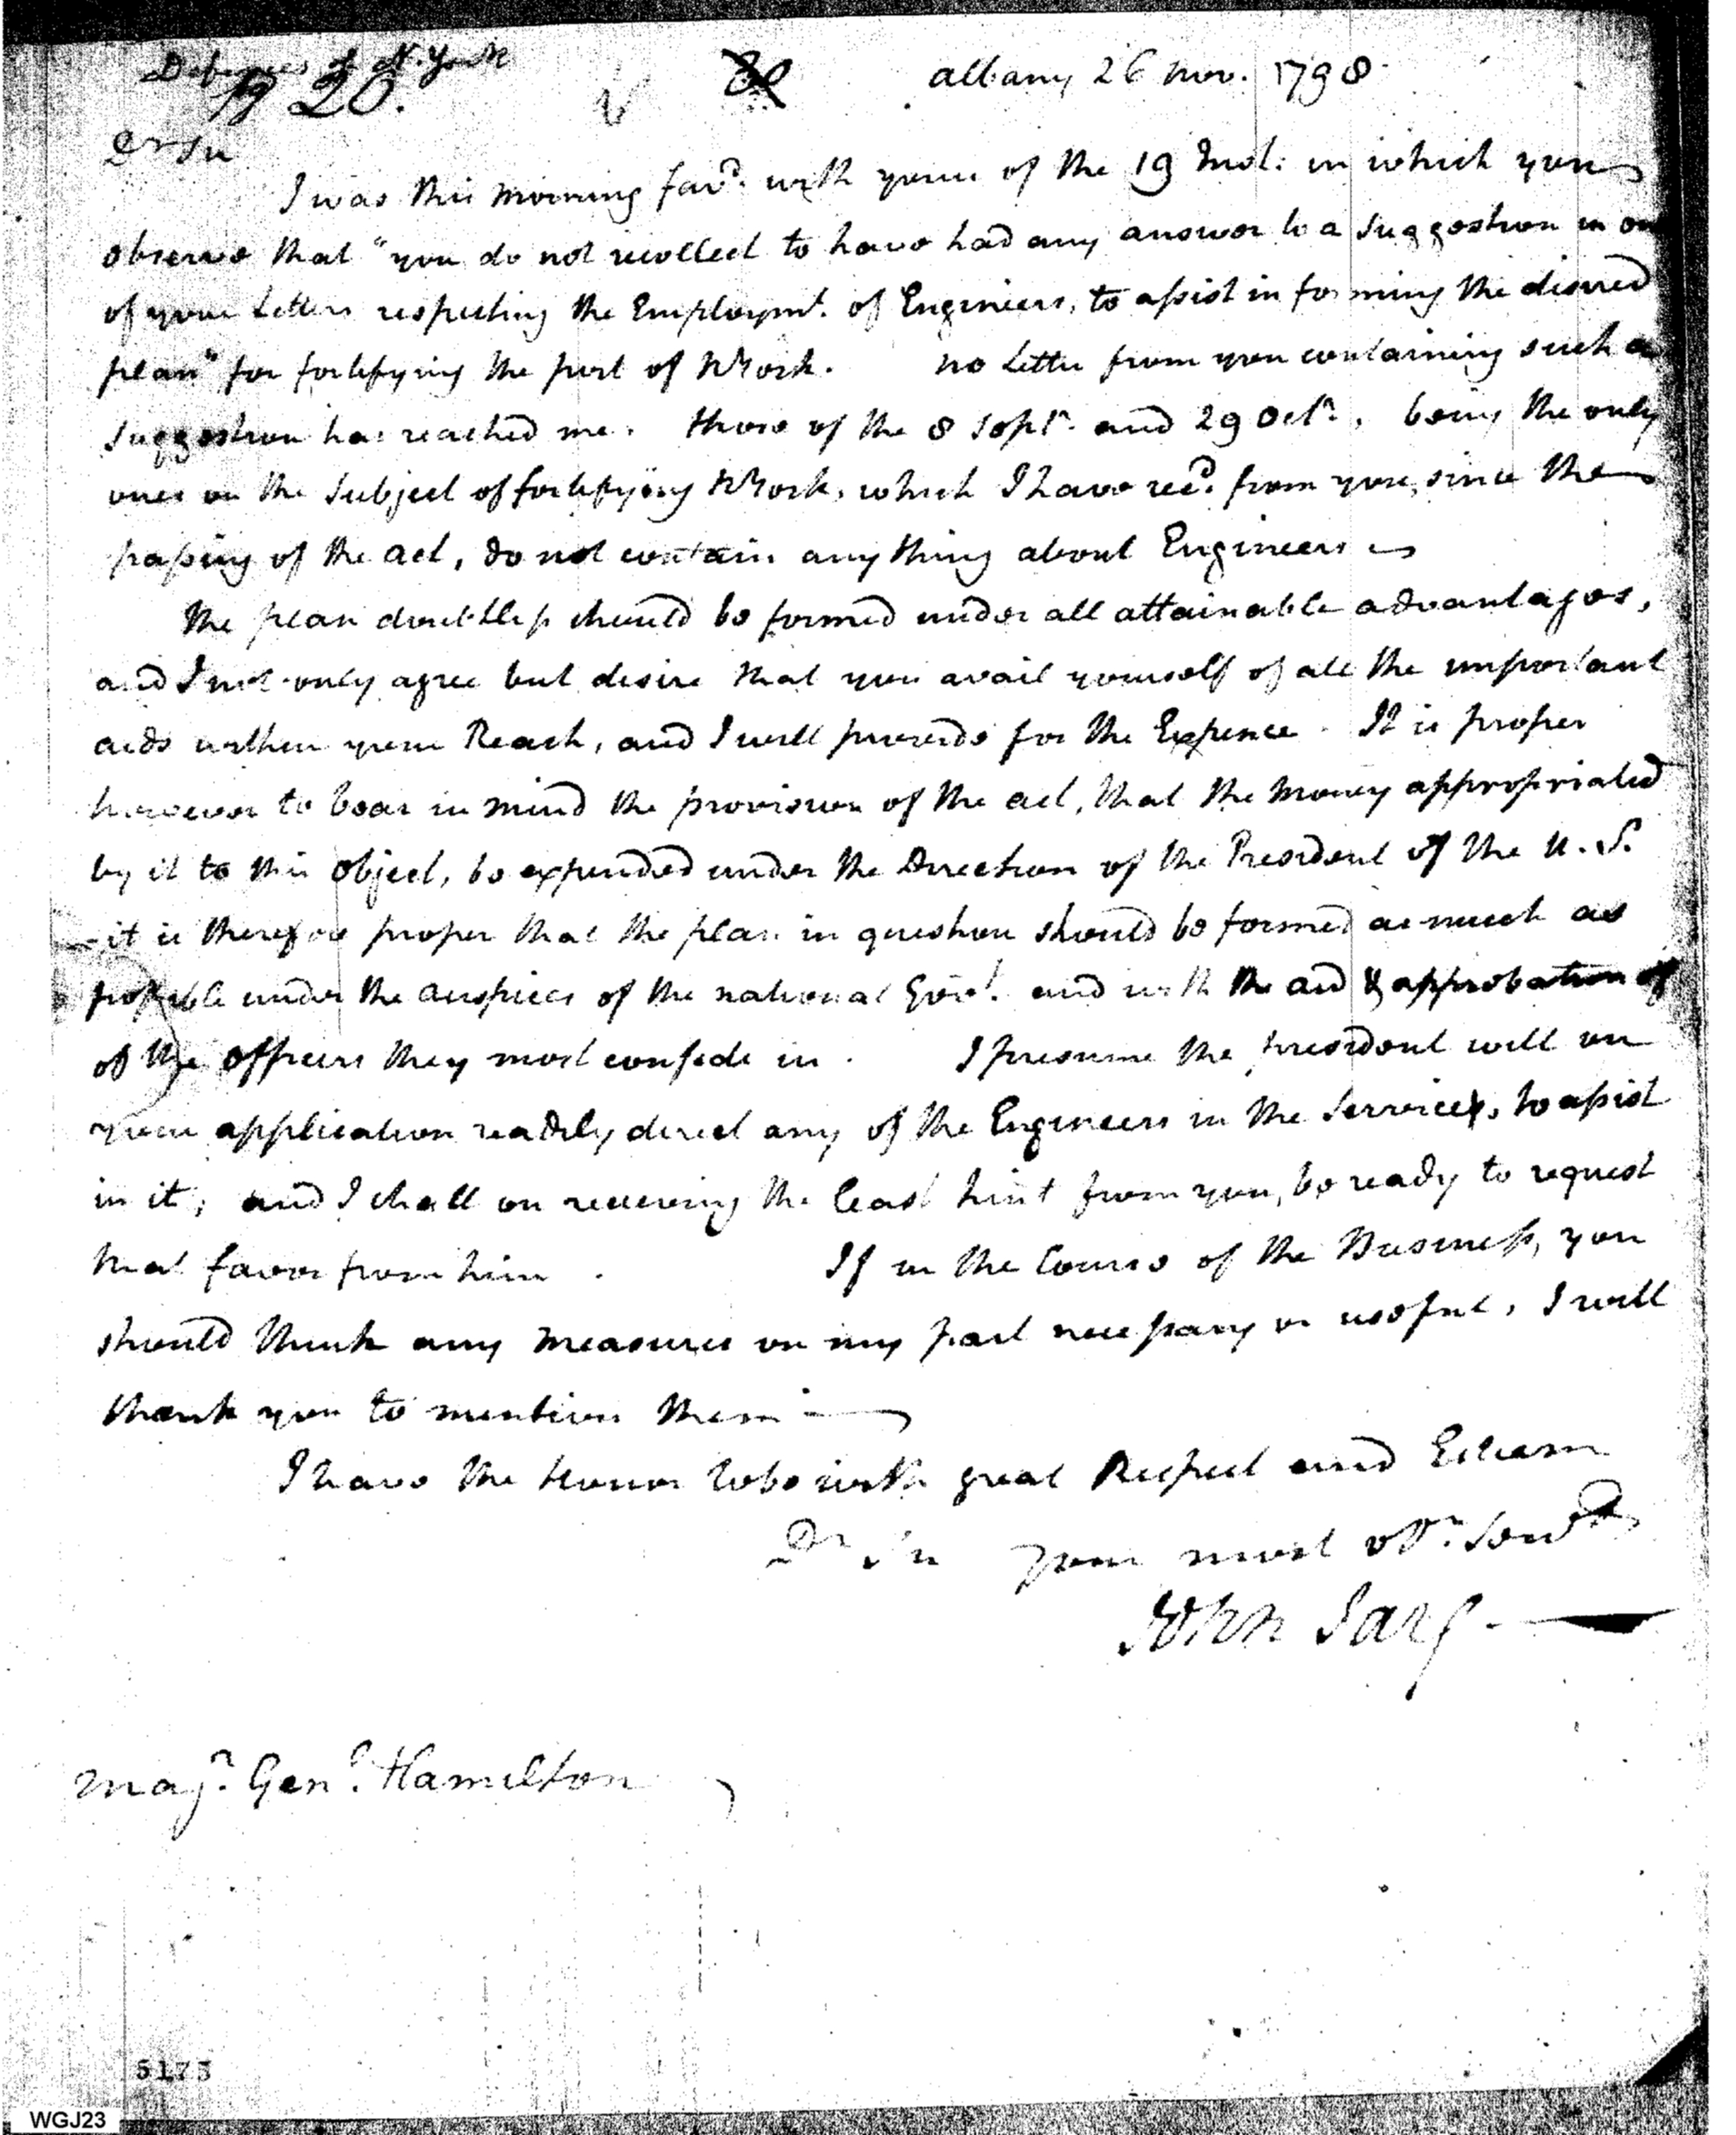 Defences of N. York
20.
30
albany 26 Nov. 1798
Dr Sir
I was this morning favd. with yours of the 19 Inst: in which you
observe that "you do not recollect to have had any answer to a suggestion in one
of your Letters respecting the Employmt. of Engineers, to assist in forming the desired
plan" for fortifying the port of NYork. no Letter from you containing such a
suggestion has reached me. those of the 8 Septr. and 29 Octr., being the only
ones on the Subject of fortifying NYork, which I have recd. from you, since the
passing of the act, do not contain any thing about Engineers
The plan doubtless should be formed under all attainable advantages,
and I not only agree but desire that you avail yourself of all the important
aids within your Reach, and I will provide for the Expence. It is proper
however to bear in mind the provision of the act, that the money appropriated
by it to this object, be expended under the Direction of the President of the U.S.
- it is therefore proper that the plan in question should be formed as much as
possible under the auspices of the national Govt. and with the aid & approbation of
of the officers they most confide in. I presume the president will on
your application readily direct any of the Engineers in the Service, to assist
in it; and I shall on receiving the least hint from you, be ready to request
that favor from him. If in the Course of the Business, you
should think any measures on my part necessary or useful, I will
thank you to mention them -
I have the Honor to be with great Respect and Esteem
Dr Sir your most obt. servt
John Jay -
Majr. Genl. Hamilton
5175
WGJ23